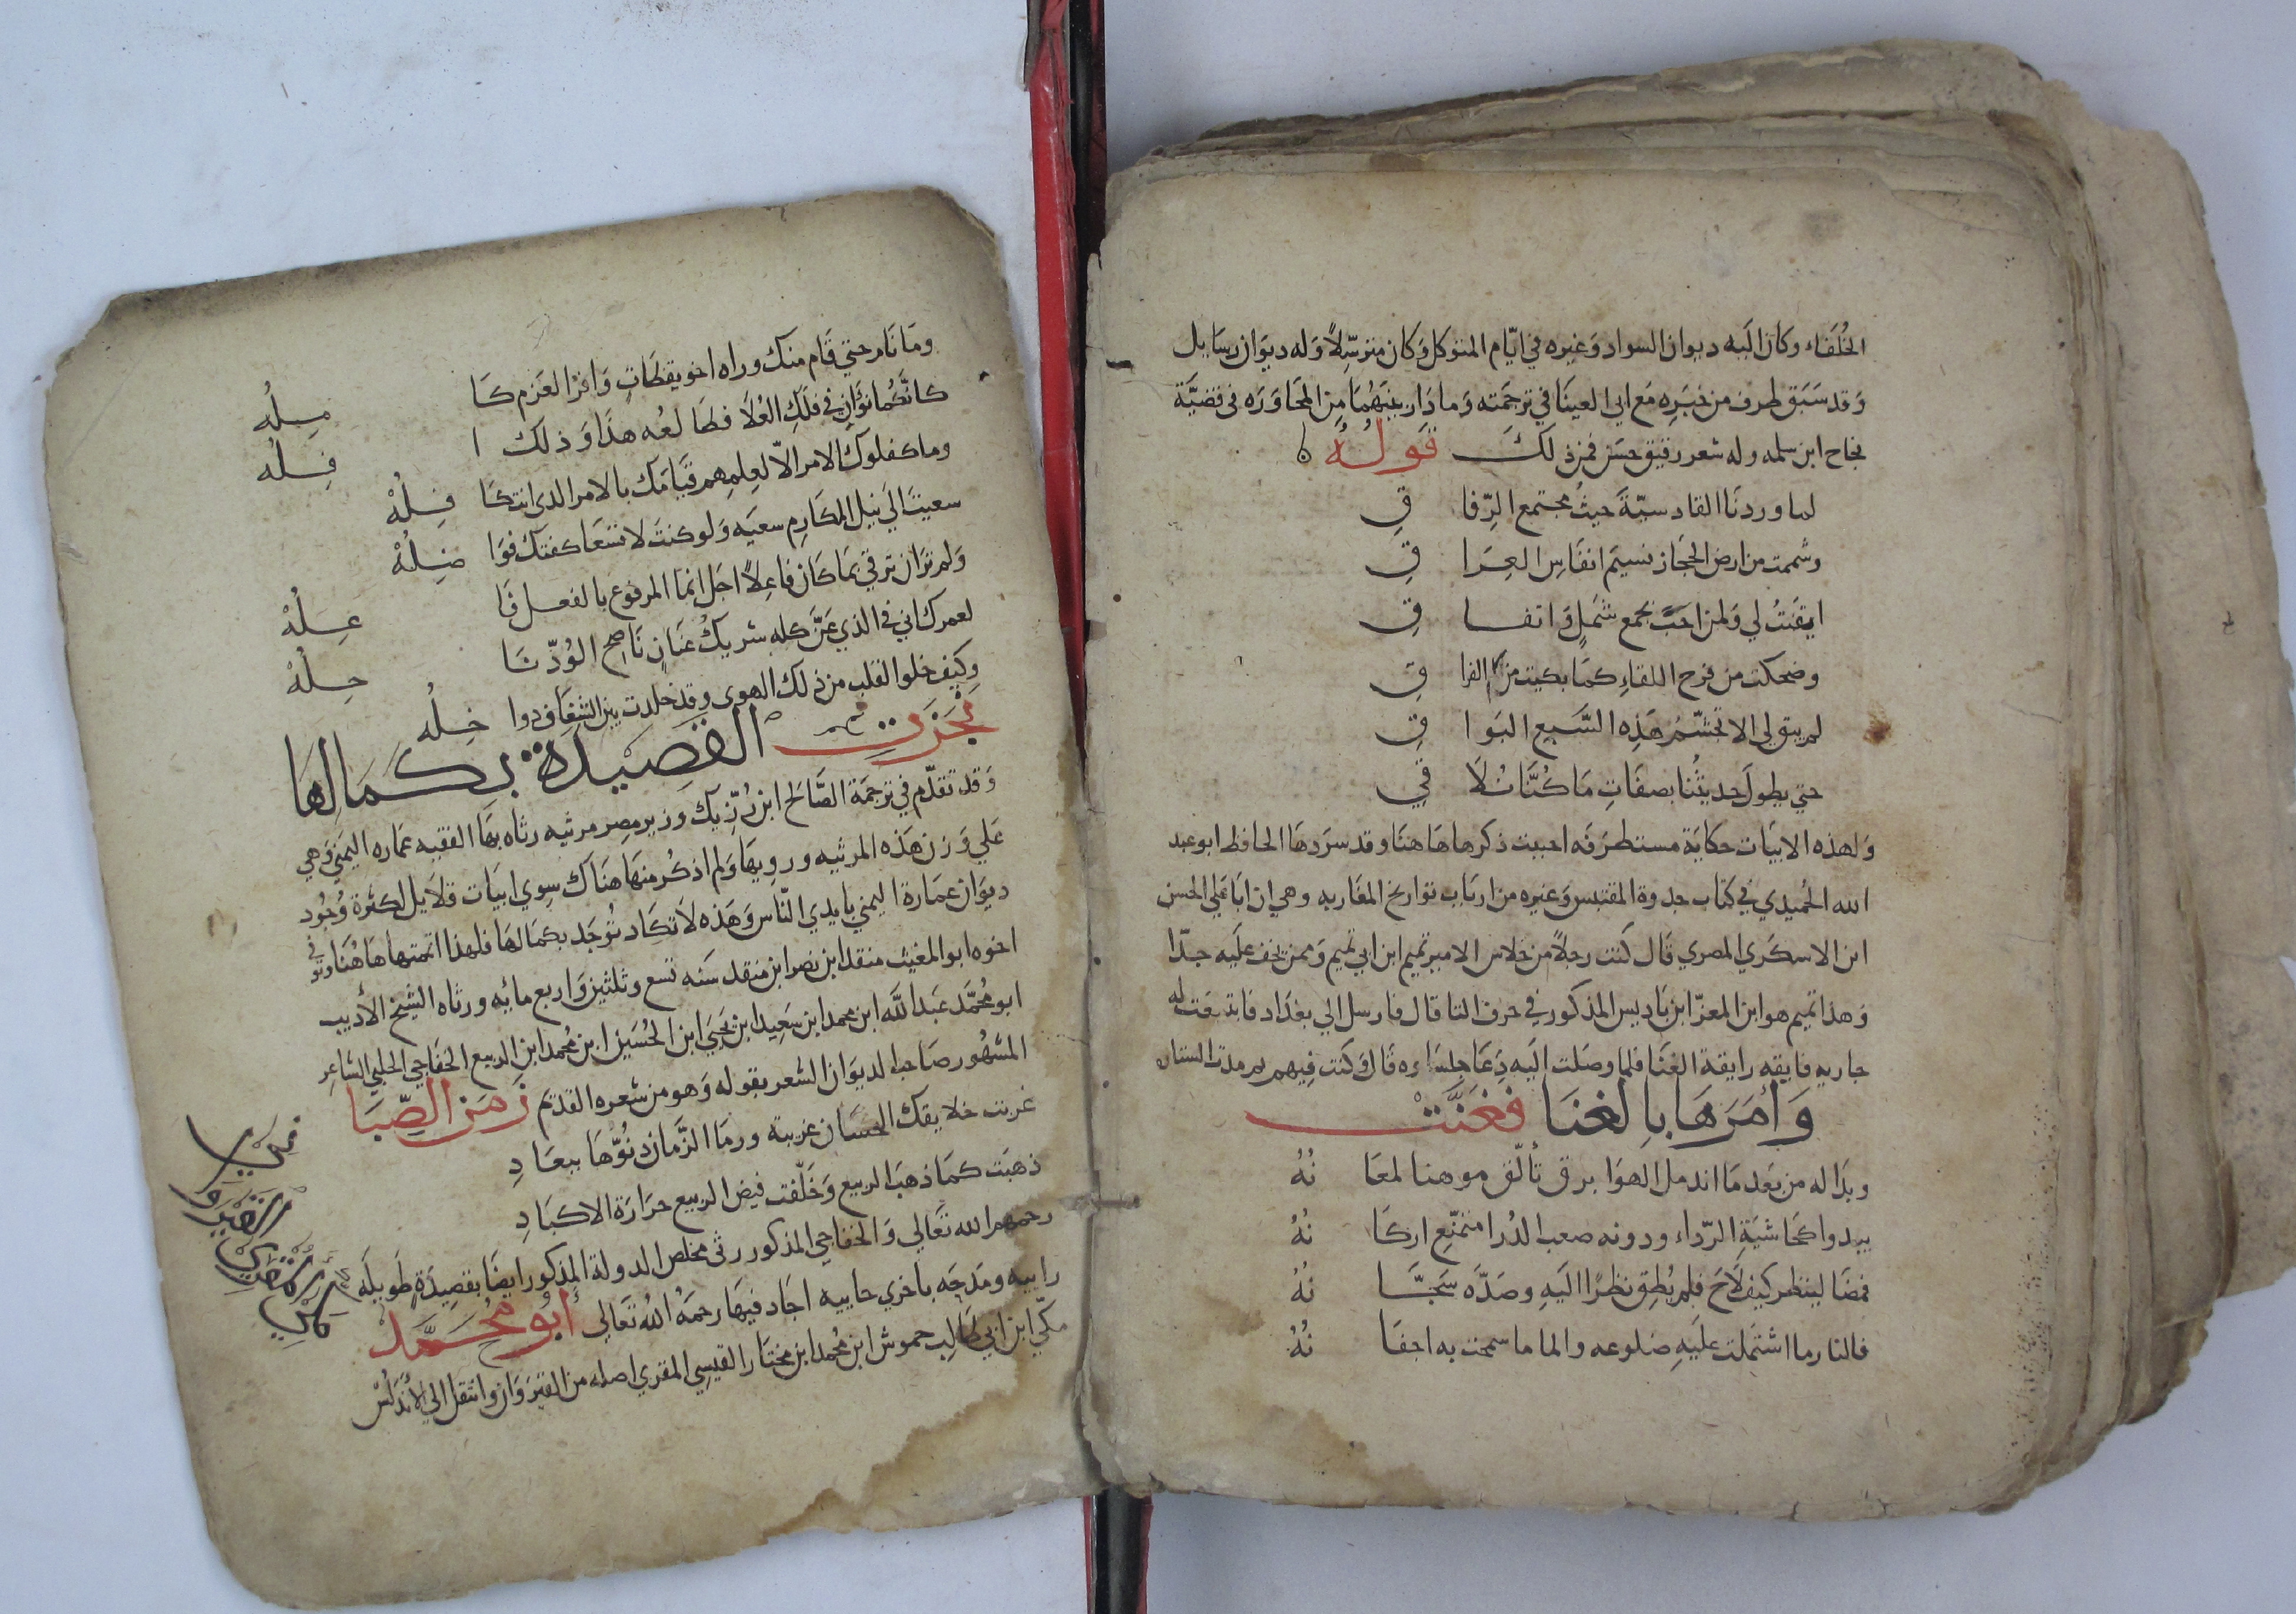 الخُلَفَاء وكان اليه ديوان السواد وَغيره في ايّام المتوكل وَكان مترسّلاً وَله ديوَان رسَايل
وَقد سَبَق طرف من خبَرِه مَع ابي العينَا في ترجمَته وَما دَار بينَهُمَا مِن المحَاوَرَه في قضيَّة
نجاح ابن سلمه وله شعر رقيق حسَن فمن ذلكَ قولهُ
لما وردنَا القادسيّةَ حيثُ مجتمع الرِّفا قِ
وشممت من ارض الحجَاز نسيمَ انفَاسِ العِرَا قِ
ايقَنتُ لي وَلمن احبّ بجمع شملٍ وَاتفا قِ
وضحكت من فرح اللقاءِ كمَا بكيت من الفرا قِ
لم يبق لي الا تجشّمُ هَذِه السَّبع البَوا قِ
حتي يطولَ حديثُنا بصفَاتِ مَا كُنَّا نُلَا قِي
وَلهذه الابيَات حكايَة مستطرَفَه احببت ذكرها هَاهنَا وقد سرَدهَا الحافظ ابو عبد
الله الحُميدي في كتاب جدوة المقتبس وَغيره من ارباب تواريخ المغاربه وهي ان ابَا عَلي الحسن
ابن الاسكَري المصري قال كنت رجلاً من جلاس الامير تميم ابن ابي تميم وَممن يخف علَيه جدّا
وَهذا تميم هو ابن المعزّ ابن بَاديس المذكور في حرف التا قال فارسل الي بغدَاد فابتيعَت له
جاريه فايقه رايقة الغنَا فلما وصَلت اليَه دَعَا جلسَاءه قَال وَكنت فِيهم ثم مدت الستان
وَأمَرهَا بِالغنَا فغَنَّت
وبدَا له من بَعد مَا اندمل الهوَا برق تألّق موهنا لمعَا نُهُ
يبدوا كحَاشيَةِ الرّداء ودونه صعب الدُرا متمنّع اركَا نُهُ
فمضَا لينظر كيف لَاحَ فلم يُطِق نظرًا اليَهِ وصَدَّه سَجَّا نُهُ
فالنار ما اشتملت علَيهِ ضلوعه والما ما سمحت به اجفَا نُهُ
ومَا نَام حتي قَام منك وراه اخو يقظَاتٍ وَافرُ العَزم كَا مِلُه
كانَّكُما نوَّانِ في فلَكِ العُلَا فطَالعُه هذَا وَذلك ا فِلُه
وما كفلوكَ الامر الّا لعِلمِهم قيَامَك بالامر الدى انتكَا فِلُهْ
سعيتَ الي نيل المكَارِم سعيَه وَلو كنتَ لا تسعَا كفتك فوَا ضِلُهْ
وَلم تَزَان ترقي بمَا كَان فاعِلاً اجَل انما المرفوع بالفعل فَا عِلُهْ
لعمرك اني في الذي عَنَّ كله شريكُ عنَانٍ نَاصح الوُدّ نَا حِلُهْ
وكيف خلوا لقلب من ذلك الهوى وقد خلدت بين الشغَاف دوا خِلُه
نجَزت القصيدة بكمَالِهَا
وَقد تقدّم في ترجَمَة الصَّالَح ابن رُزّيك وزير مصِر مرثيه رثاه بهَا الفقيه عمَاره اليمَني وَهي
عَلي وَزن هَذه المرثيه ورويهَا وَلم اذكُر منهَا هنَاك سِوي ابيَات قلَايل لكَثرة وُجُود
ديوَان عمَارة اليمني بايدي النّاس وَهَذه لَا تكَاد توُجَد بكمَالهَا فلهذا اتمتها هَاهُنَا وتوفي
اخوه ابو المغيث منقد ابن نصر ابن منقد سَنه تسع وثلثين وَاربع مائه ورثاه الشيخ الأديب
ابو محُمّد عبد اللَّه ابن محمد ابن سَعِيد ابن يَحيَي ابن الحُسَين ابن مُحمد ابن الربيع الخفاجي الحلبي الشاعِر
المشهُور صَاحب الديوَان الشعر بقوله وَهو من شعره القديم زمَن الصِّبَا
غربت خلايقك الحسَان غريبة ورمَا الزَّمان دنُوّهَا ببعَا دِ
ذهَبَت كمَا ذهَبَ الربيع وَخَلّفت فيض الربيع حرَارَة الاكبَا دِ
رحمهم الله تعَالي وَالخفاجي المذكور رثى مخلص الدولة المذكور ايضًا بقصِيدَةٍ طَويلَه
راييه ومَدحَه باخري حاييه اجَاد فيهَا رحمَهُ اللهُ تَعَالي أبُو مُحَمَّد
مكّي ابن ابي طَالِب حموش ابن مُحمد ابن مختَار القَيسِي المقري اصله من القيرَوَان وانتقل الي الأَندَلُس